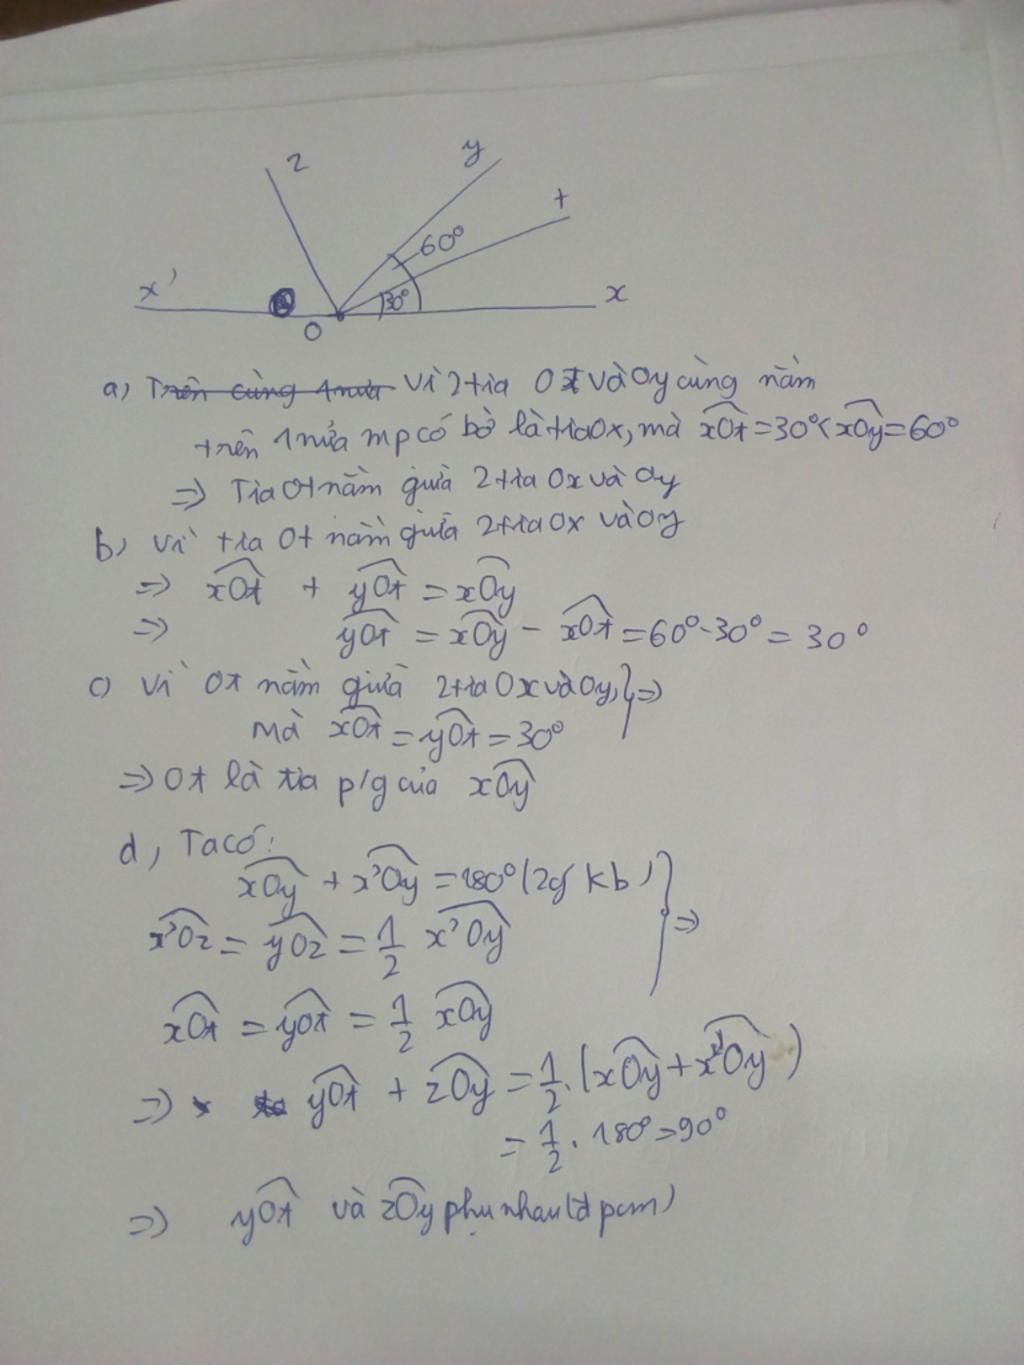 z
y
t
60°
x'
30°
x
O
a) Trên cùng 1 nửa Vì 2 tia Ot và Oy cùng nằm
trên 1 nửa mp có bờ là tia Ox, mà xOt = 30° < xOy = 60°
=> Tia Ot nằm giữa 2 tia Ox và Oy
b) Vì tia Ot nằm giữa 2 tia Ox và Oy
=> xOt + yOt = xOy
=> yOt = xOy - xOt = 60° - 30° = 30°
c) Vì Ot nằm giữa 2 tia Ox và Oy, } =>
mà xOt = yOt = 30°
=> Ot là tia p/g của xOy
d, Ta có:
xOy + x'Oy = 180° (2 g kb) } =>
x'Oz = yOz = 1/2 x'Oy
xOt = yOt = 1/2 xOy
=> yOt + zOy = 1/2 . (xOy + x'Oy)
= 1/2 . 180° = 90°
=> yOt và zOy phụ nhau (đpcm)